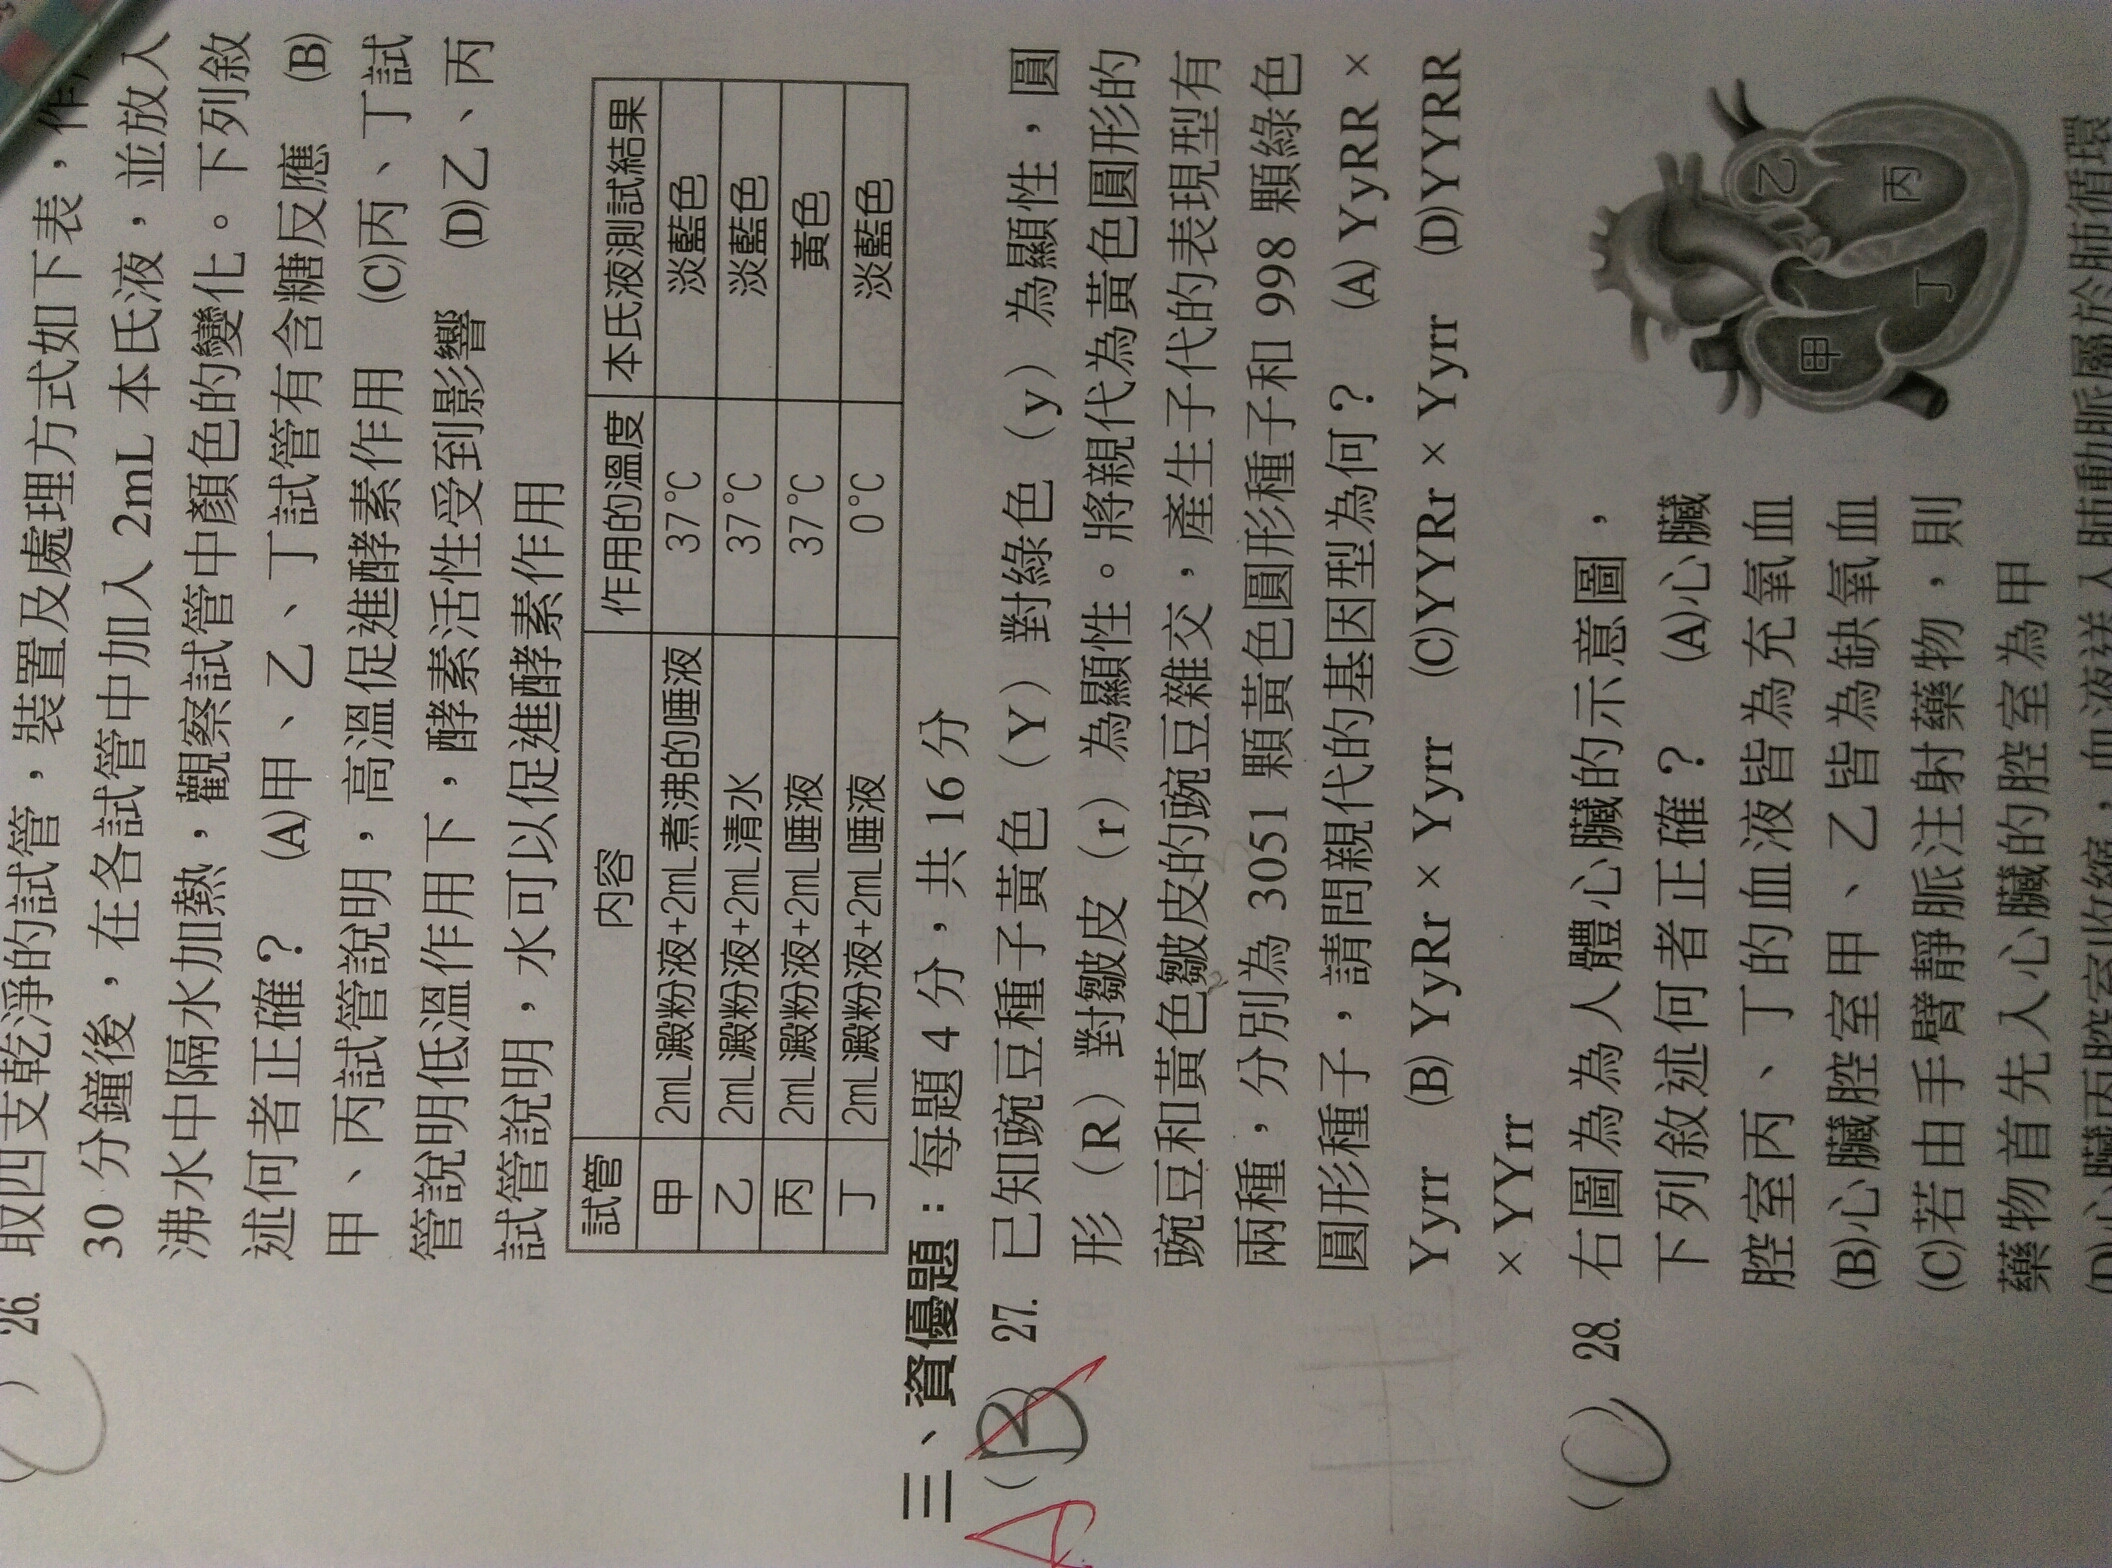 (C) 26. 取四支乾淨的試管，裝置及處理方式如下表，作
30 分鐘後，在各試管中加入 2mL 本氏液，並放入
沸水中隔水加熱，觀察試管中顏色的變化。下列敘
述何者正確？ (A)甲、乙、丁試管有含糖反應 (B)
甲、丙試管說明，高溫促進酵素作用 (C)丙、丁試
管說明低溫作用下，酵素活性受到影響 (D)乙、丙
試管說明，水可以促進酵素作用
試管 內容 作用的溫度 本氏液測試結果
甲 2mL澱粉液+2mL煮沸的唾液 37℃ 淡藍色
乙 2mL澱粉液+2mL清水 37℃ 淡藍色
丙 2mL澱粉液+2mL唾液 37℃ 黃色
丁 2mL澱粉液+2mL唾液 0℃ 淡藍色
三、資優題：每題 4 分，共 16 分
A (B) 27. 已知豌豆種子黃色（Y）對綠色（y）為顯性，圓
形（R）對皺皮（r）為顯性。將親代為黃色圓形的
豌豆和黃色皺皮的豌豆雜交，產生子代的表現型有
兩種，分別為 3051 顆黃色圓形種子和 998 顆綠色
圓形種子，請問親代的基因型為何？ (A) YyRR ×
Yyrr (B) YyRr × Yyrr (C)YYRr × Yyrr (D)YYRR
× YYrr
(C) 28. 右圖為為人體心臟的示意圖，
下列敘述何者正確？ (A)心臟
腔室丙、丁的血液皆為充氧血
(B)心臟腔室甲、乙皆為缺氧血
(C)若由手臂靜脈注射藥物，則
藥物首先入心臟的腔室為甲
(D)心臟丙腔室收縮，血液送入肺動脈屬於肺循環
甲
乙
丙
丁